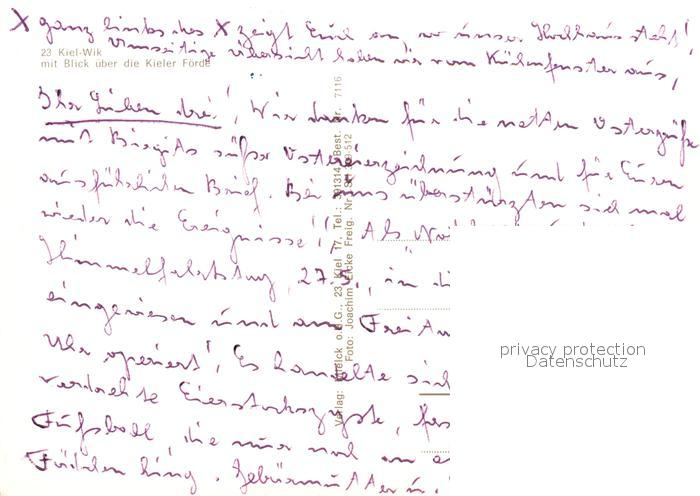 X ganz links das X zeigt Euch an, wo unser Hochhaus steht!
Umseitige Übersicht haben wir vom Küchenfenster aus,
23 Kiel-Wik
mit Blick über die Kieler Förde
Ihr Lieben drei! Wir danken für die netten Ostergrüße
mit Birgits süßer Ostereierzeichnung und für Euren
ausführlichen Brief. Bei uns überstürzten sich mal
wieder die Ereignisse!! Als
Himmelfahrtstag, 27.5., in di
eingewiesen und am Freitag
Uhr operiert! Es handelte sich
verdrehte Eierstockszyste,
Fußball, die nur noch an
Fädchen hing. Gebärmutter u.
Verlag: o.H.G., 23 Kiel 17, Tel.: Best. Nr. 7116
Foto: Joachim Freig. Nr. SH
privacy protection
Datenschutz